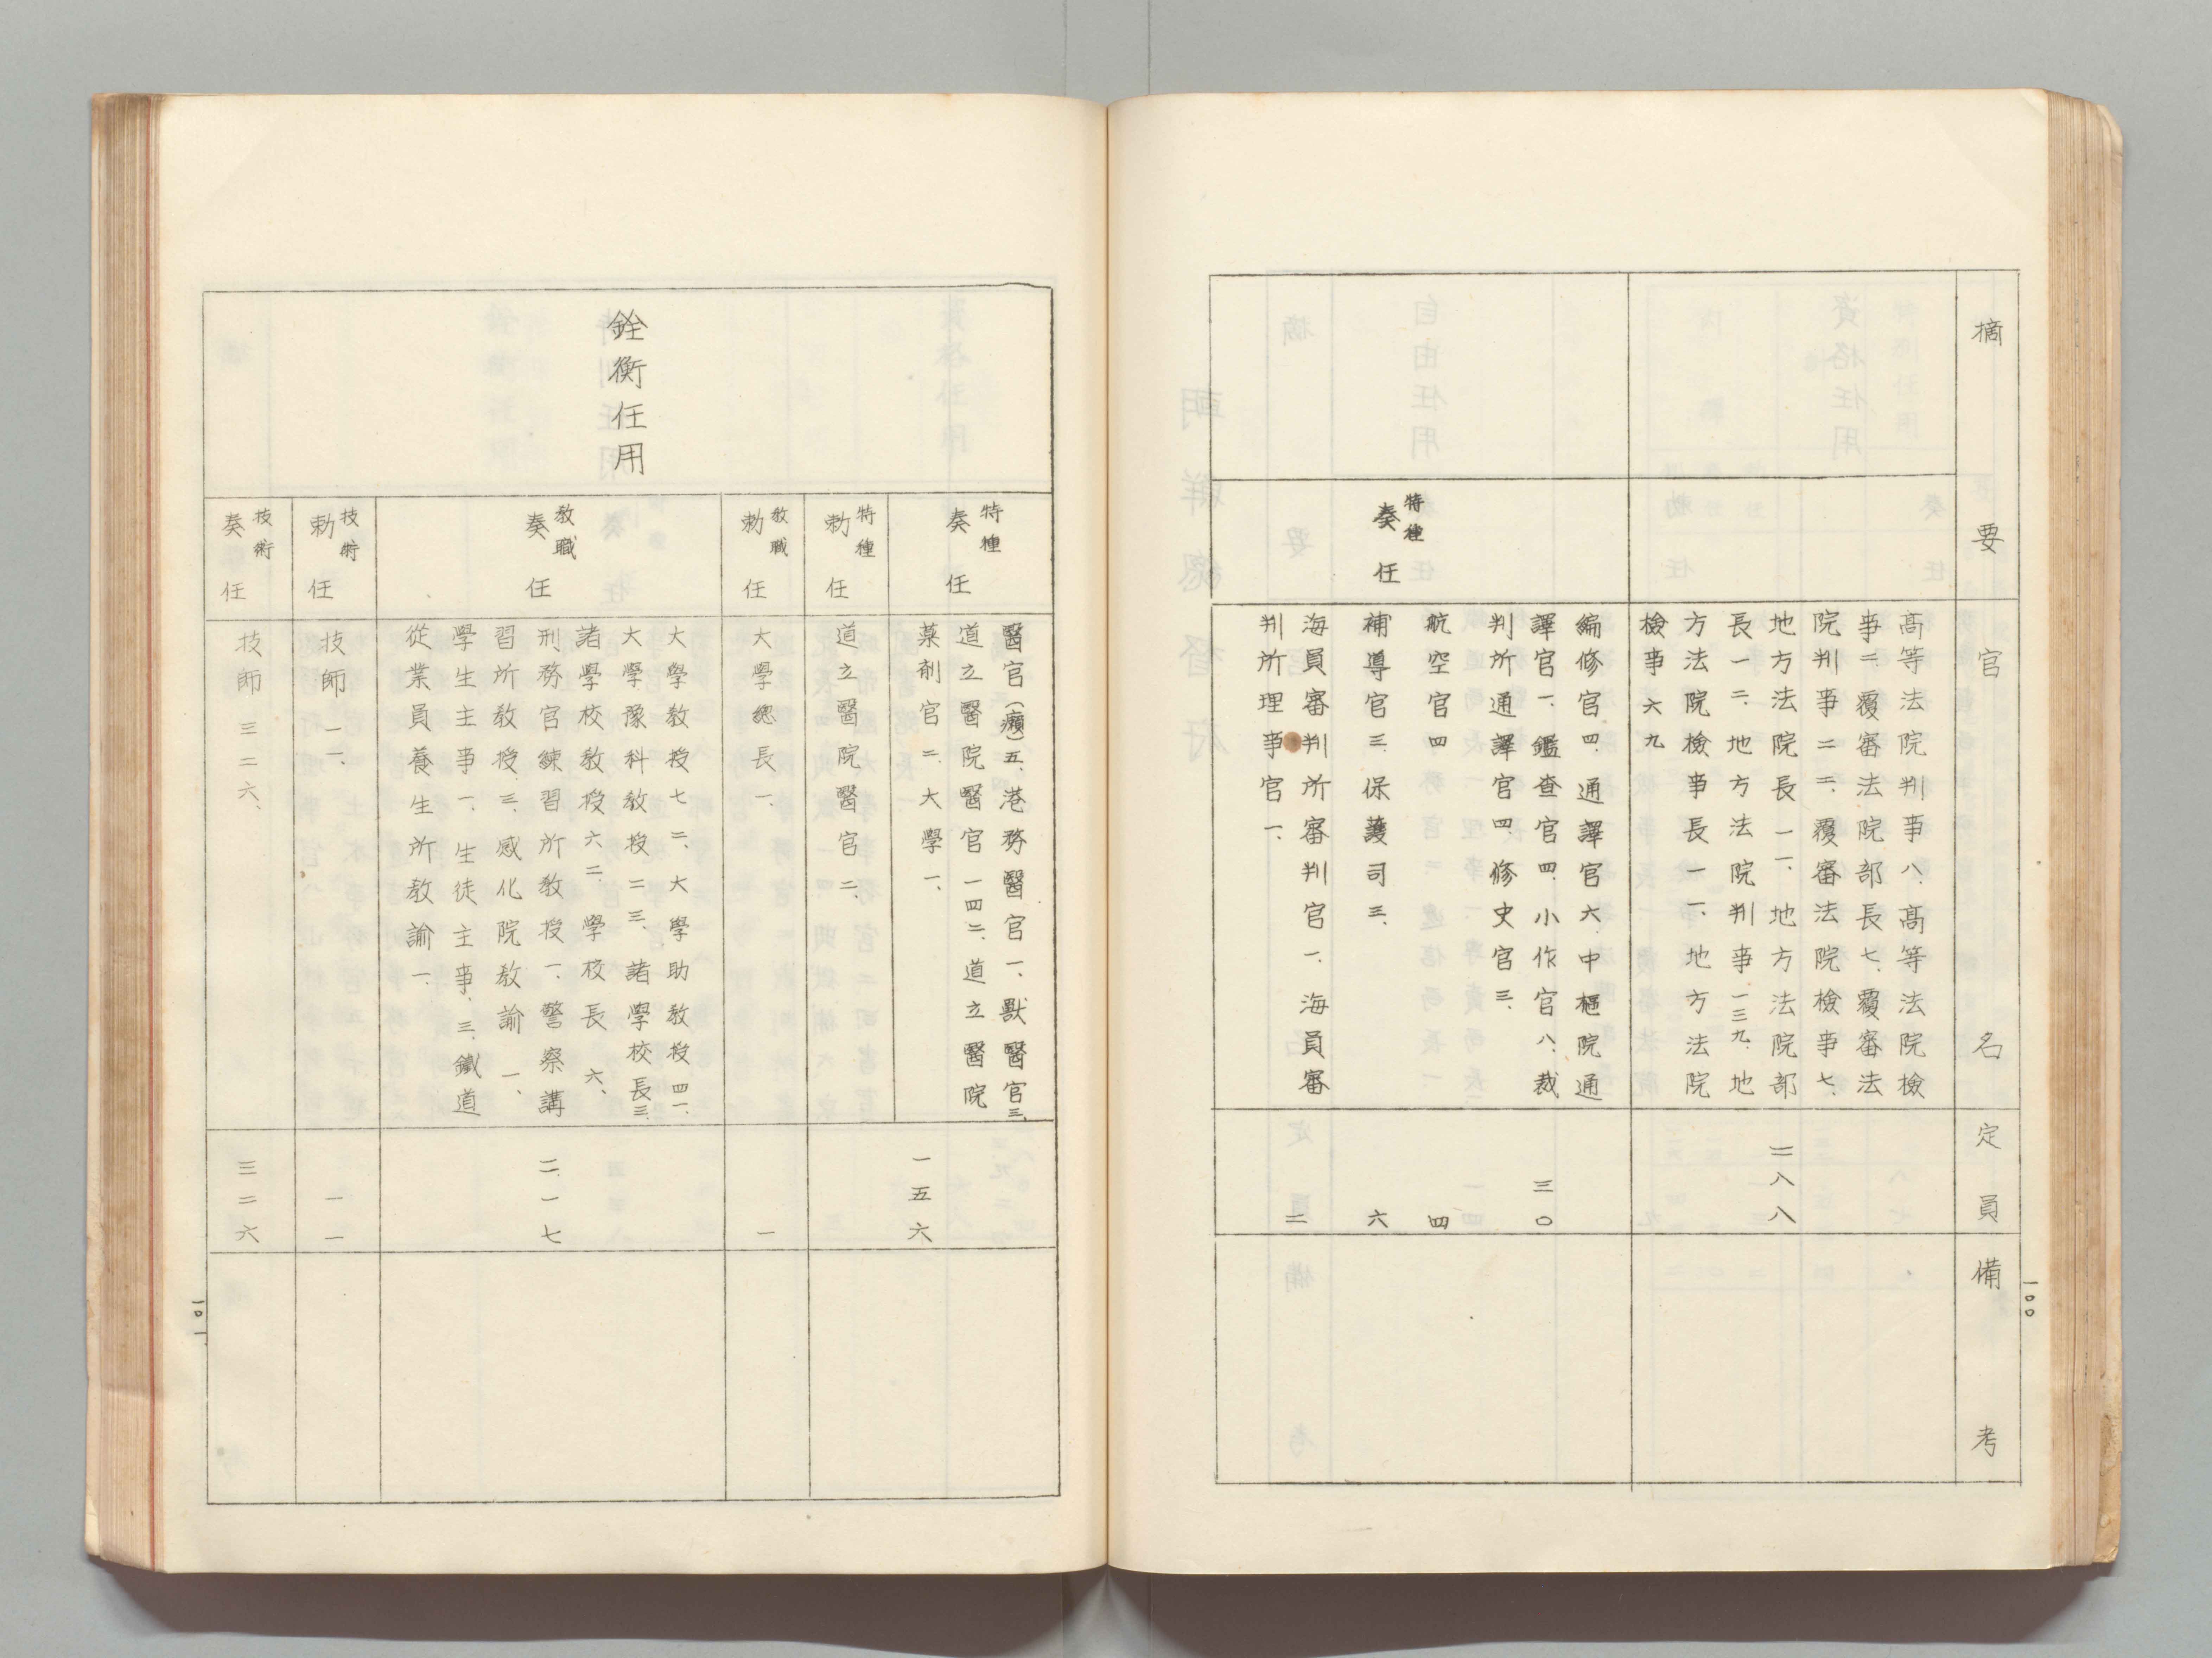 摘要
官名
定員
備考
高等法院判事八、高等法院檢
事二、覆審法院部長七、覆審法
院判事二二、覆審法院檢事七、
地方法院長一一、地方法院部
長一二、地方法院判事一三九、地
方法院檢事長一一、地方法院
檢事六九
二八八
特種
奏任
編修官四、通譯官六、中樞院通
譯官一、鑑査官四、小作官八、裁
判所通譯官四、修史官三、
三〇
航空官四
四
補導官三、保護司三、
六
海員審判所審判官一、海員審
判所理事官一、
二
一〇〇
銓衡任用
特種
奏任
醫官（癩）五、港務醫官一、獸醫官三、
道立醫院醫官一四二、道立醫院
藥剤官二、大學一、
特種
勅任
道立醫院醫官二、
一五六
敎職
勅任
大學總長一、
一
敎職
奏任
大學敎授七二、大學助敎授四一、
大學豫科敎授二三、諸學校長三、
諸學校敎授六二、學校長六、
刑務官練習所敎授一、警察講
習所敎授三、感化院敎諭一、
學生主事一、生徒主事三、鐵道
從業員養生所敎諭一、
二一七
技術
勅任
技師一一、
一一
技術
奏任
技師三二六、
三二六
一〇一